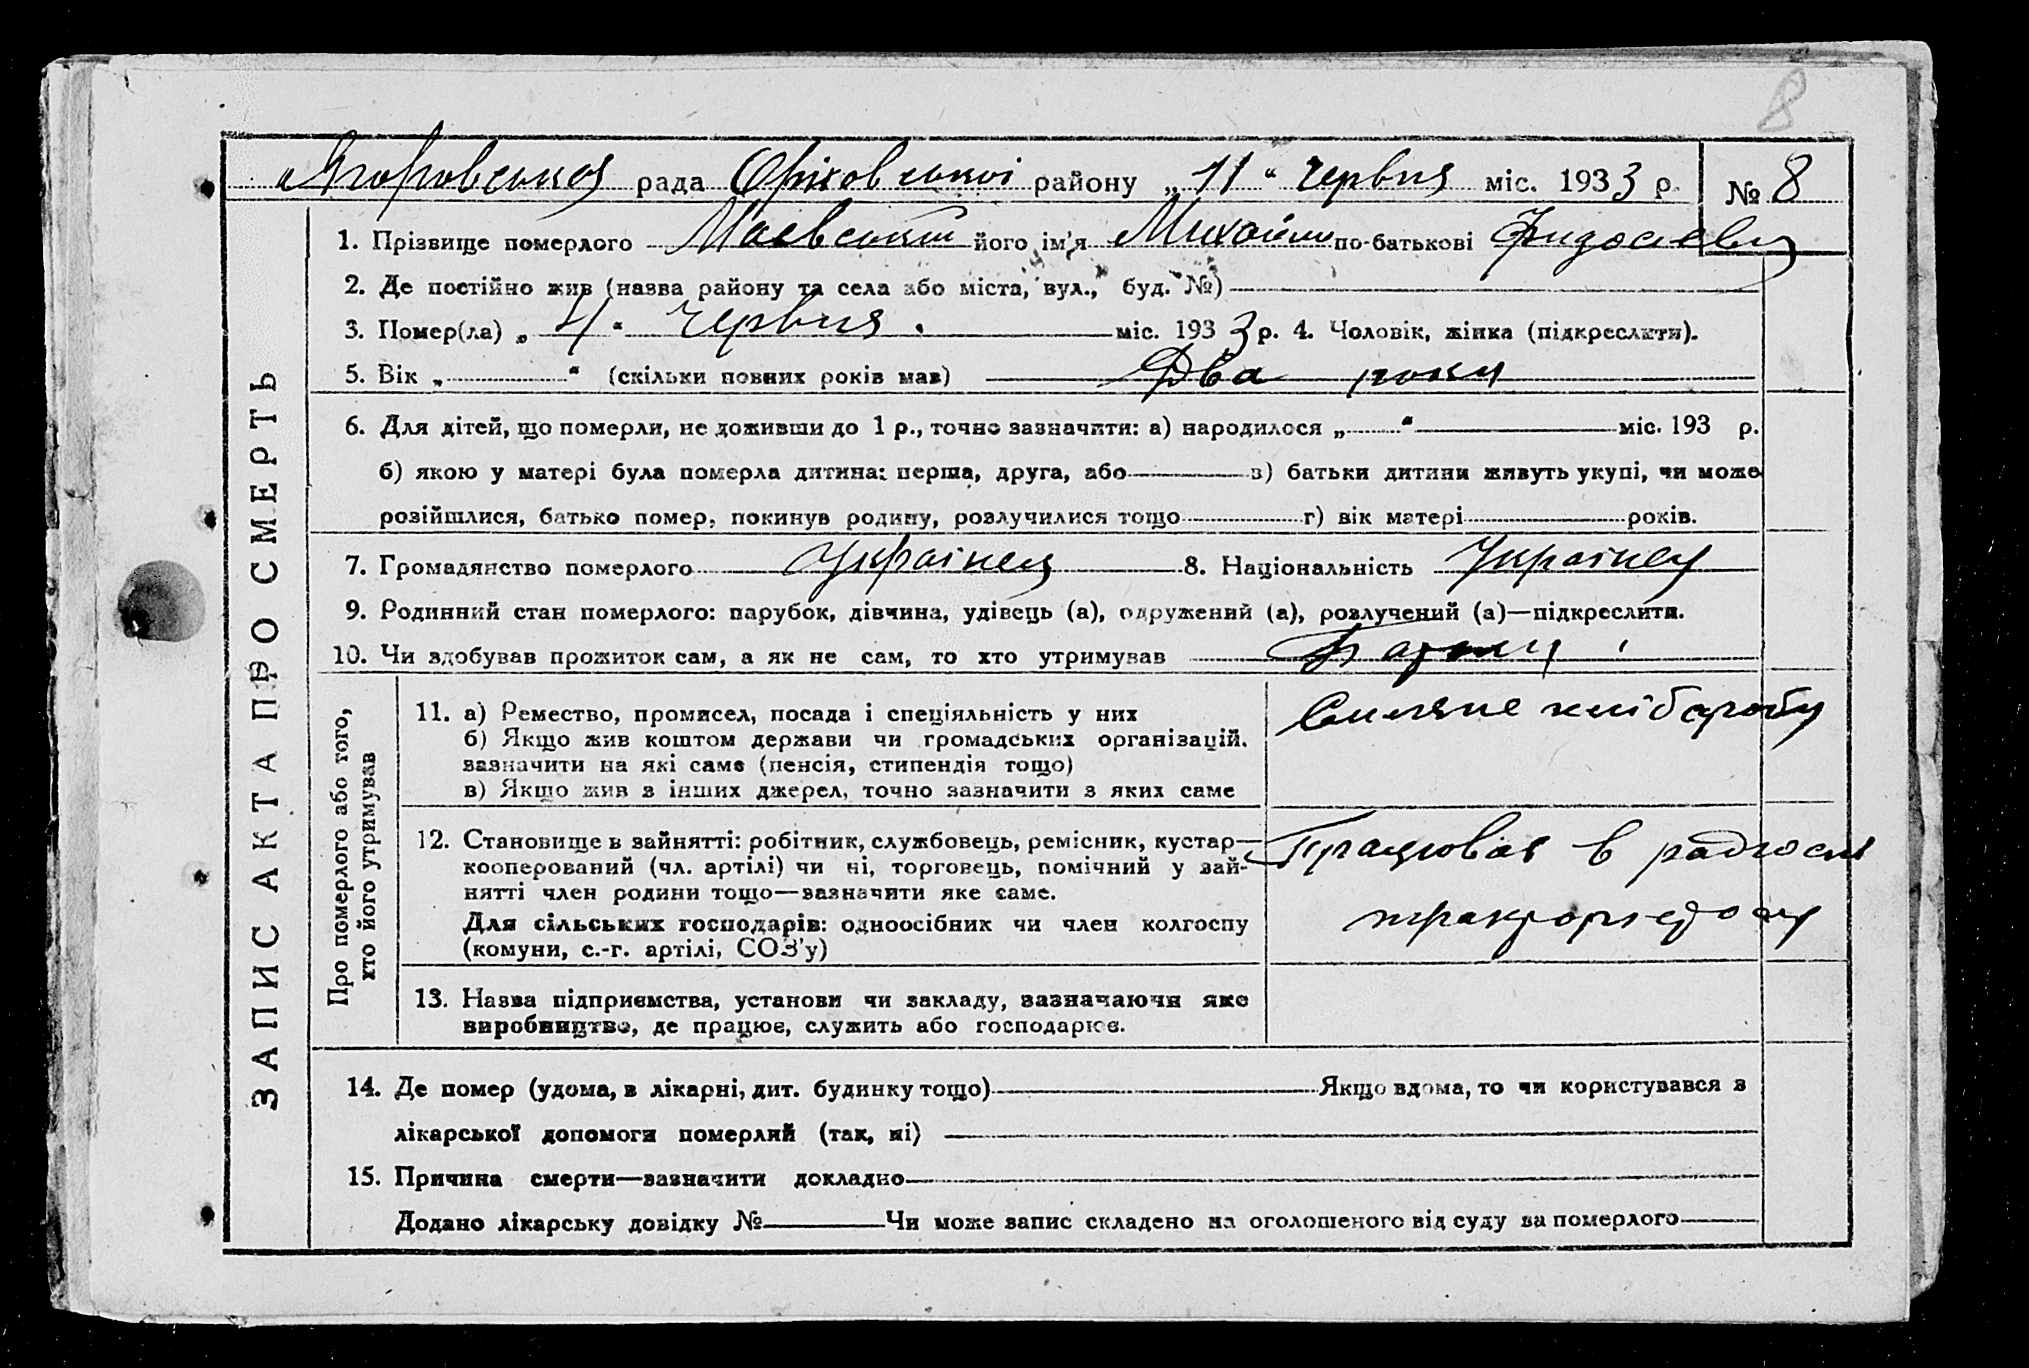 8
Ягоровська рада Оріховської району „11“ червня міс. 1933 р. № 8
1. Прізвище померлого Маєвський його ім'я Михайло по-батькові
2. Де постійно жив (назва району та села або міста, вул., буд. №)
3. Помер(ла) „ “ червня міс. 1933 р. 4. Чоловік, жінка (підкреслити).
5. Вік „ “ (скільки повних років мав) Два роки
6. Для дітей, що померли, не доживши до 1 р., точно зазначити: а) народилося „ “ міс. 193 р.
б) якою у матері була померла дитина: перша, друга, або в) батьки дитини живуть укупі, чи може
розійшлися, батько помер, покинув родину, розлучилися тощо г) вік матері років.
7. Громадянство померлого Українец 8. Національність Українец
9. Родинний стан померлого: парубок, дівчина, удівець (а), одружений (а), розлучений (а)—підкреслити.
10. Чи здобував прожиток сам, а як не сам, то хто утримував Батьки
ЗАПИС АКТА ПРО СМЕРТЬ
Про померлого або того,
хто його утримував
11. а) Ремество, промисел, посада і спеціяльність у них
б) Якщо жив коштом держави чи громадських організацій,
зазначити на які саме (пенсія, стипендія тощо)
в) Якщо жив з інших джерел, точно зазначити з яких саме
12. Становище в зайнятті: робітник, службовець, ремісник, кустар—
кооперований (чл. артілі) чи ні, торговець, помічний у зай-
нятті член родини тощо—зазначити яке саме.
Для сільських господарів: одноосібник чи член колгоспу
(комуни, с.-г. артілі, СОЗ'у)
Працював в радгоспі
13. Назва підприємства, установи чи закладу, зазначаючи яке
виробництво, де працює, служить або господарює.
14. Де помер (удома, в лікарні, дит. будинку тощо) Якщо вдома, то чи користувався з
лікарської допомоги померлий (так, ні)
15. Причина смерти—зазначити докладно
Додано лікарську довідку № Чи може запис складено на оголошеного від суду за померлого